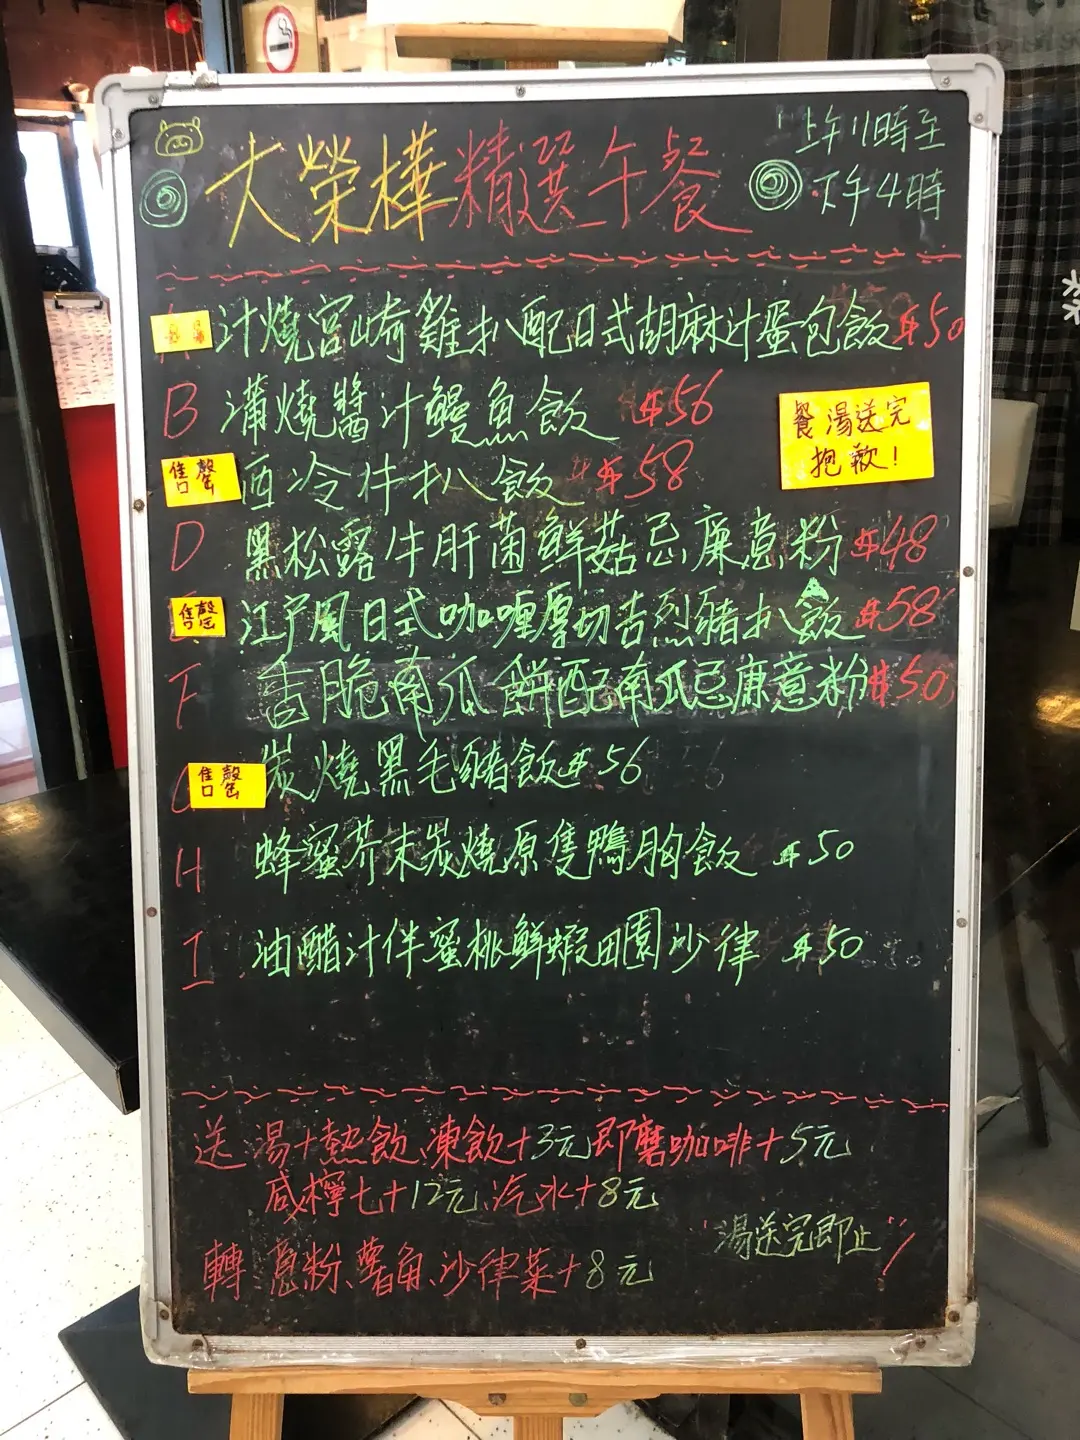 大榮樺精選午餐
上午11時至
下午4時
汁燒宮崎雞扒配日式胡麻汁蛋包飯$50
B 蒲燒醬汁鰻魚飯 $56
餐湯送完
抱歉!
售罄 西冷件扒飯 $58
D 黑松露牛肝菌鮮菇忌廉意粉 $48
售罄 江戶風日式咖喱厚切吉烈豬扒飯 $58
F 香脆南瓜餅配南瓜忌廉意粉 $50
售罄 炭燒黑毛豬飯 $56
H 蜂蜜芥末炭燒原隻鴨胸飯 $50
I 油醋汁伴蜜桃鮮蝦田園沙律 $50
送 湯+熱飲、凍飲+3元即磨咖啡+5元
咸檸七+12元、汽水+8元
"湯送完即止"
轉 意粉、薯角、沙律菜+8元